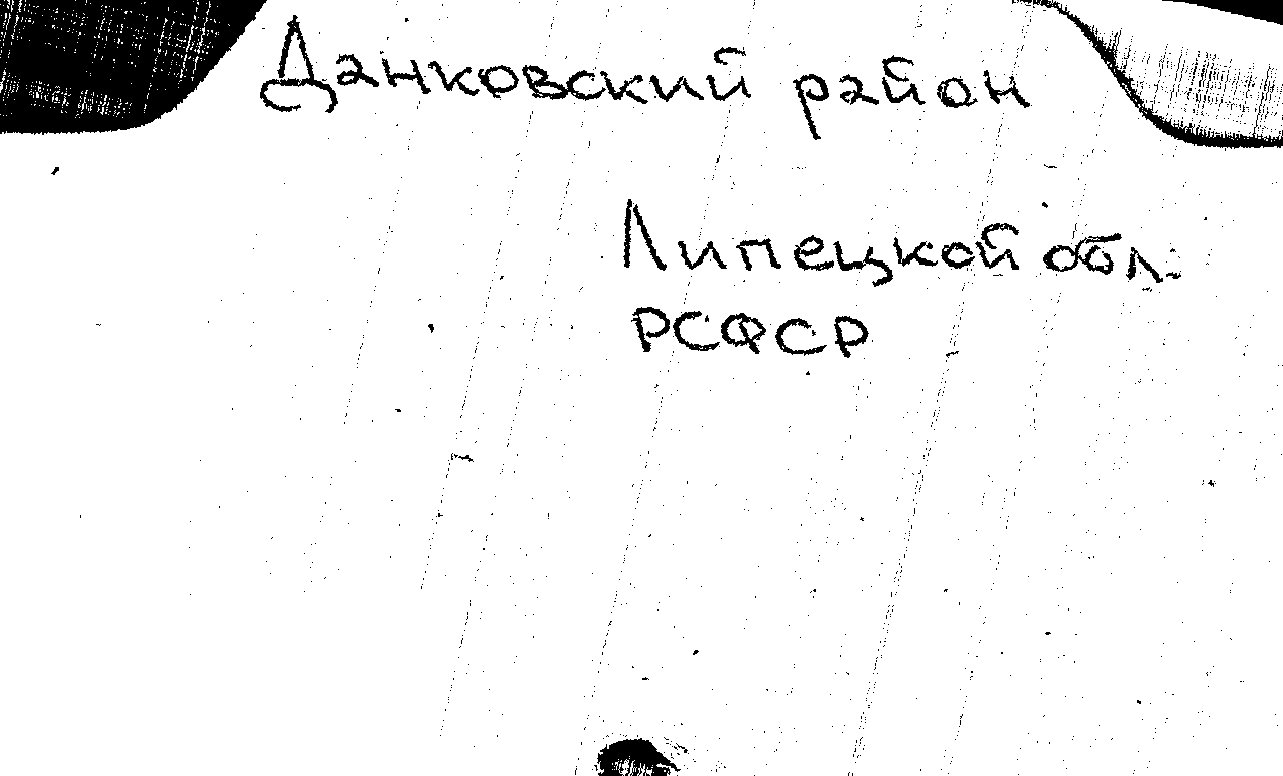 Данковский район
Липецкой обл.
РСФСР